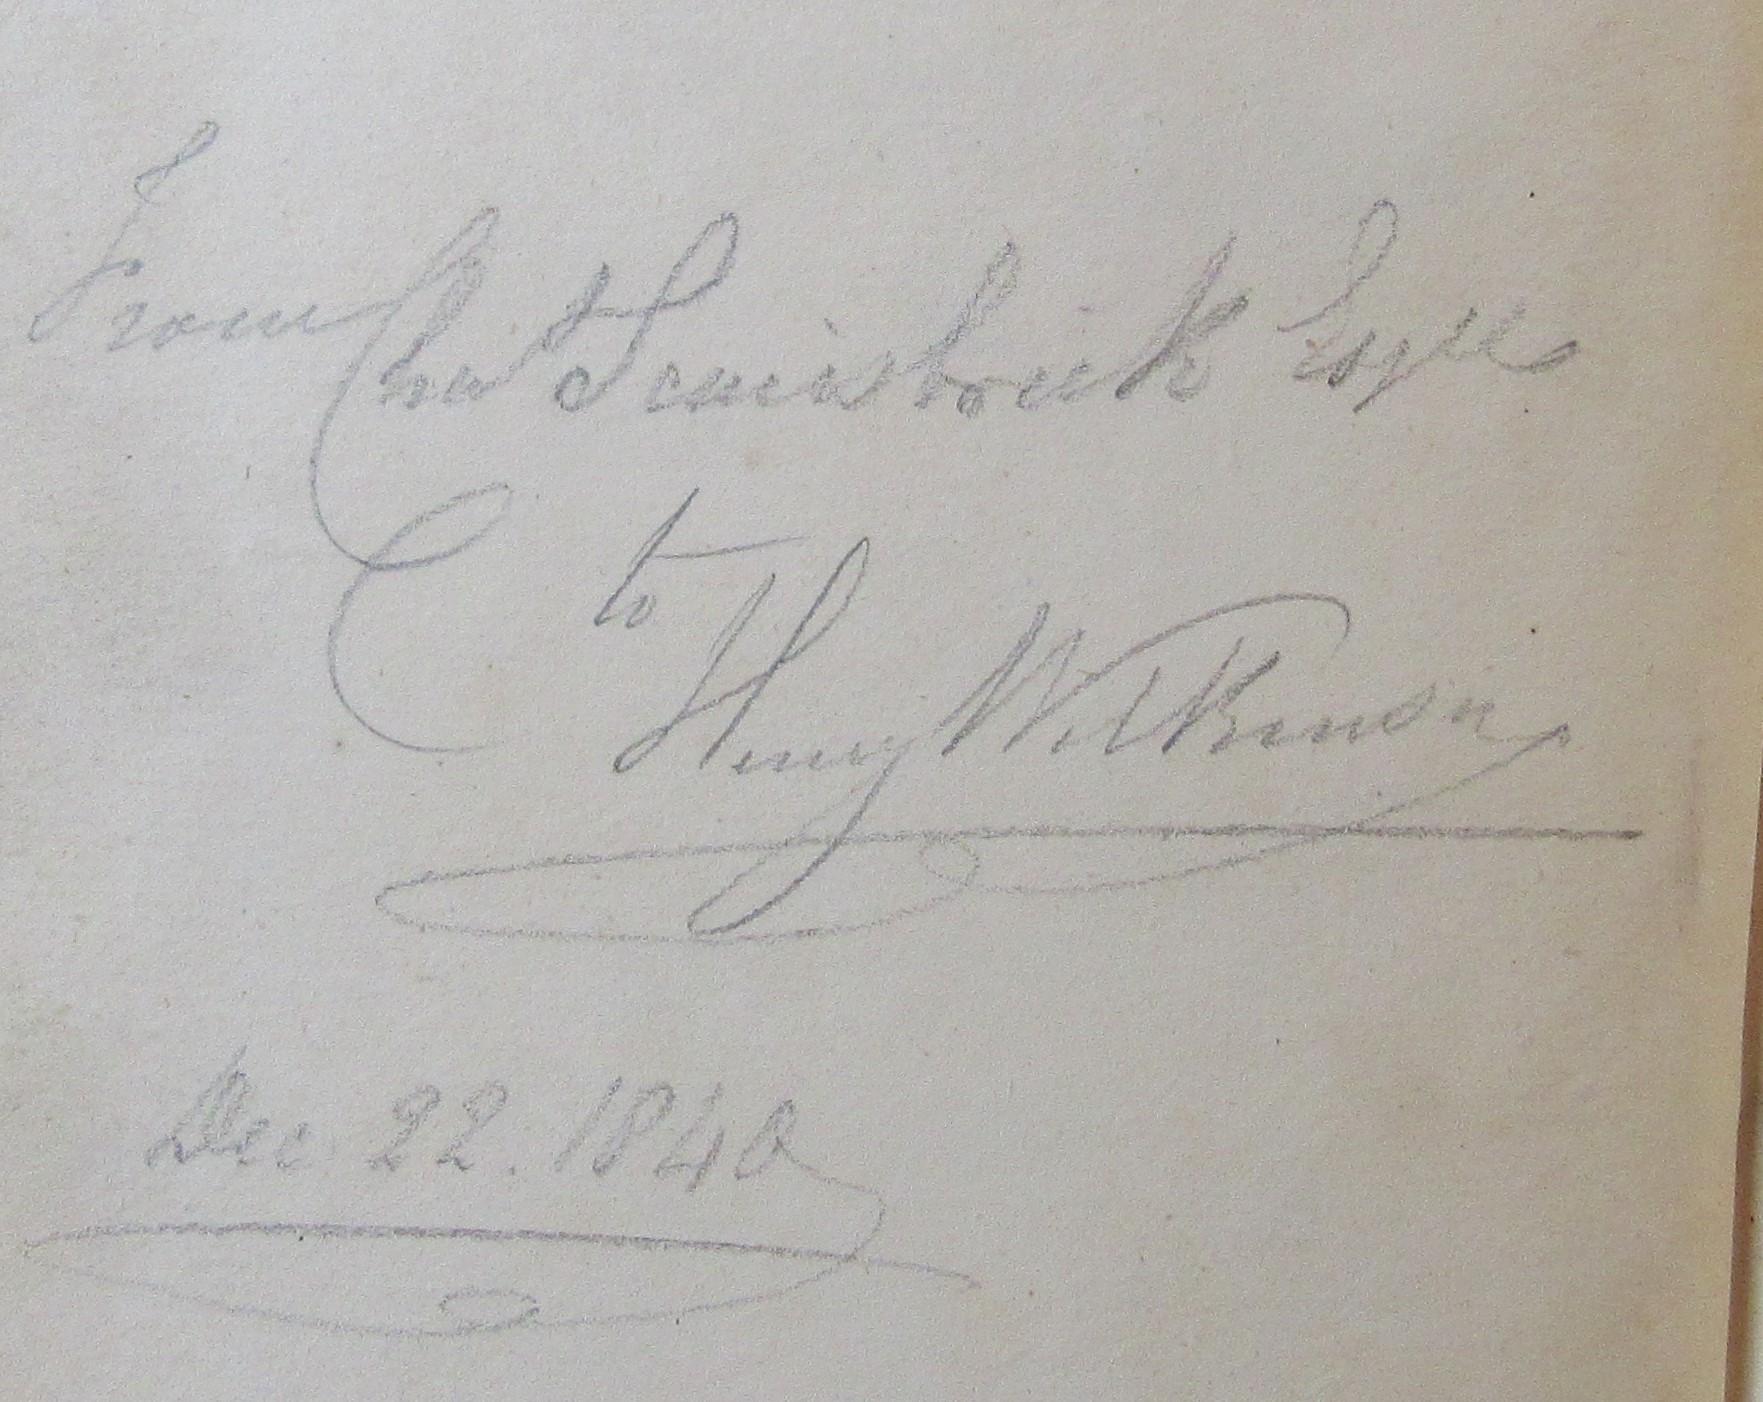 From Cha Scarisbrick Esqre
to
Henry Wilkinson
Dec 22. 1840